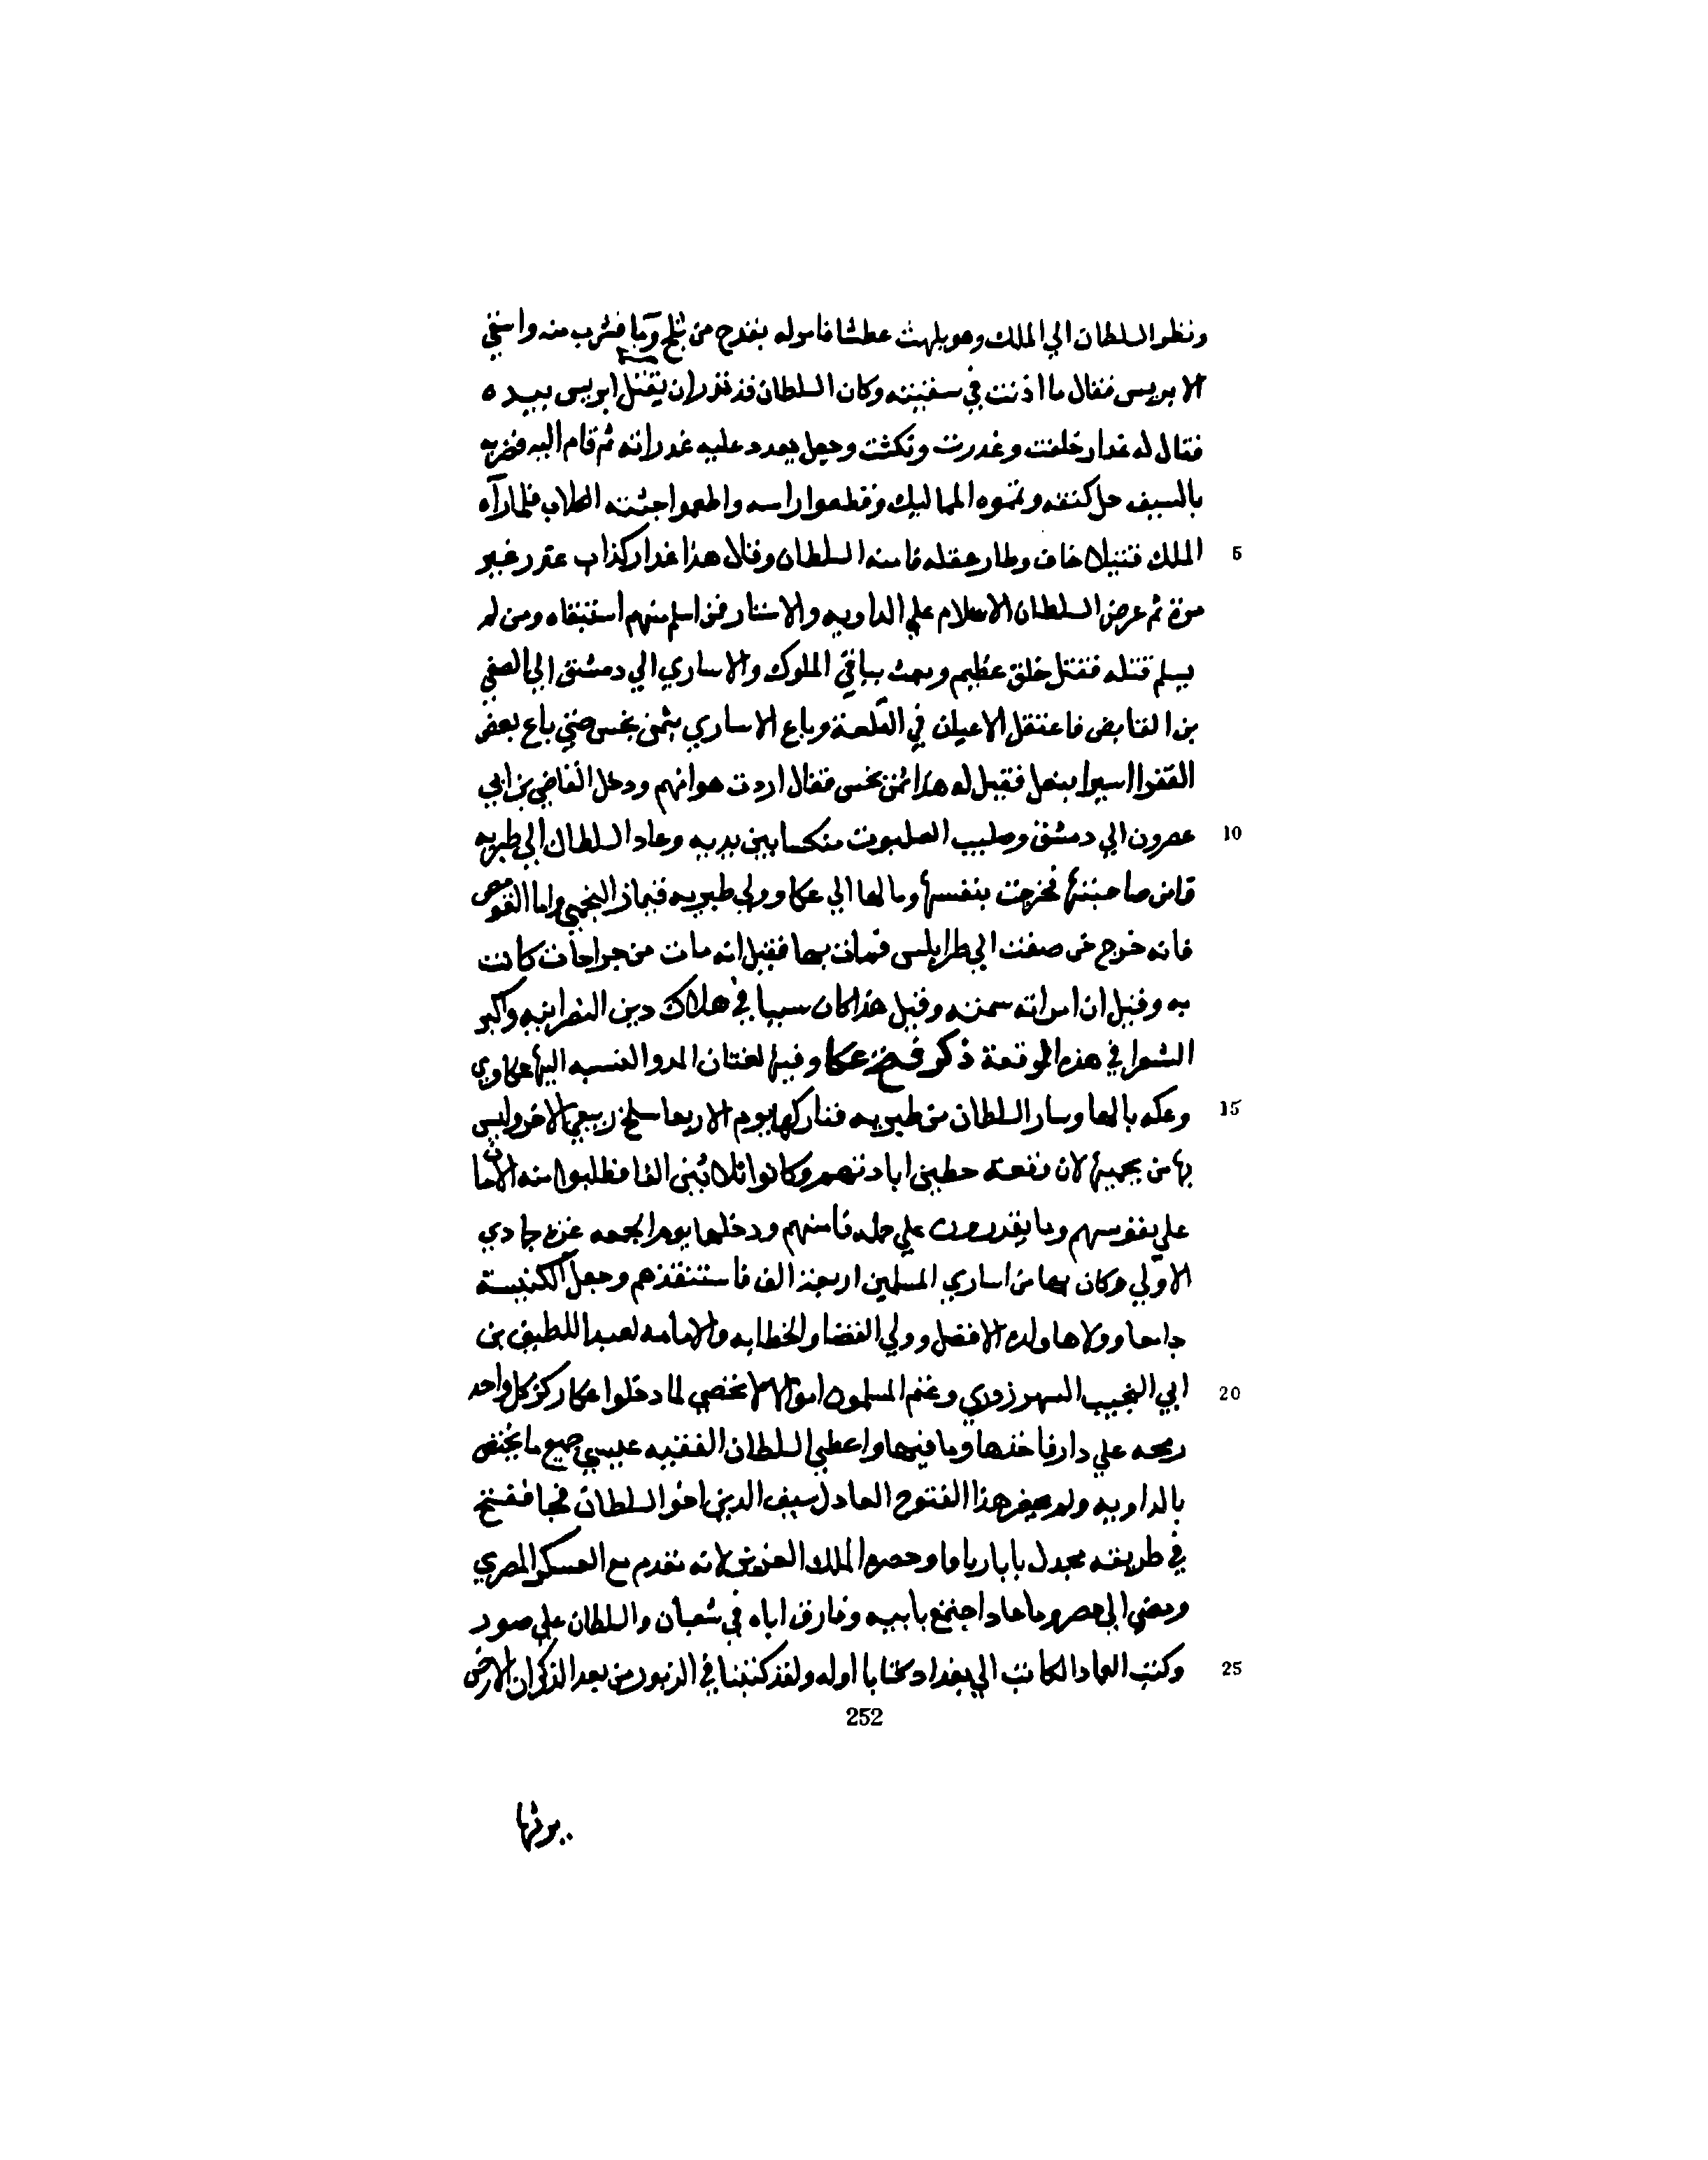 ونظر السلطان الي الملك وهو يلهث عطشا فامر له بقدح من ثلج وما فشرب منه واسقي
الابريس فقال ما اذنت في سقيته وكان السلطان قد نذر ان يقتل ابريس بيده
فقال له غدار حلفت وغدرت ونكثت وجعل يعدد عليه غدراته ثم قام اليه فضربه
بالسيف حل كتفه وتمموه المماليك وقطعوا راسه واطعموا جثته الكلاب فلما رآه
5 الملك قتيلا خاف وطار عقله فامنه السلطان وقال هذا غدار كذاب غدر غير
مرة ثم عرض السلطان الاسلام علي الداويه والاستار فمن اسلم منهم استبقاه ومن لم
يسلم قتله فقتل خلق عظيم وبعث بباقي الملوك والاساري الي دمشق الي الصفي
بن القابض فاعتقل الاعيان في القلعة وباع الاساري بثمن بخس حتي باع بعض
الفقرا اسيرا بنعل فقيل له هذا ثمن بخس فقال اردت هوانهم ودخل القاضي بن ابي
10 عصرون الي دمشق وصليب الصلبوت منكسا بين يديه وعاد السلطان الي طبريه
فامن صاحبتها فخرجت بنفسها ومالها الي عكا وولي طبريه قيماز النجمي واما القومص
فانه خرج من صفت الي طرابلس فمات بها فقيل انه مات من جراحات كانت
به وقيل ان امراته سمته وقيل هذا كان سببا في هلاك دين النصرانيه واكبر
الشعرا في هذه الموقعة ذكر فتح عكا وفيها لغتان المد والنسبه اليها عكاوي
15 وعكه بالها وسار السلطان من طبريه فنازلها يوم الاربعا سلخ ربيع الاخر وليس
بها من يحميها لان وقعة حطين ابادتهم وكانوا ثلاثين الفا فطلبوا منه الامان
علي نفوسهم وما يقدرون علي حمله فامنهم ودخلها يوم الجمعه غرة جمادي
الاولي وكان بها من اساري المسلمين اربعة الف فاستنقذهم وجعل الكنيسة
جامعا وولاها ولده الافضل وولي القضا والخطابه والامامه لعبد اللطيف بن
20 ابي النجيب السهرزوري وغنم المسلمون اموالا لا تحصي لما دخلوا عكا ركز كل واحد
رمحه علي دار فاخذها وما فيها واعطي السلطان الفقيه عيسي جميع ما يختص
بالداويه ولم يحضر هذا الفتوح العادل سيف الدين اخو السلطان فجا ففتح
في طريقه مجدل يابا ويافا وحصر الملك العزيز لانه تقدم مع العسكر المصري
ومضي الي مصر وما عاد اجتمع بابيه وفارق اباه في شعبان والسلطان علي صور
25 وكتب العماد الكاتب الي بغداد كتابا اوله ولقد كتبنا في الزبور من بعد الذكر ان الارض
252
يرثها